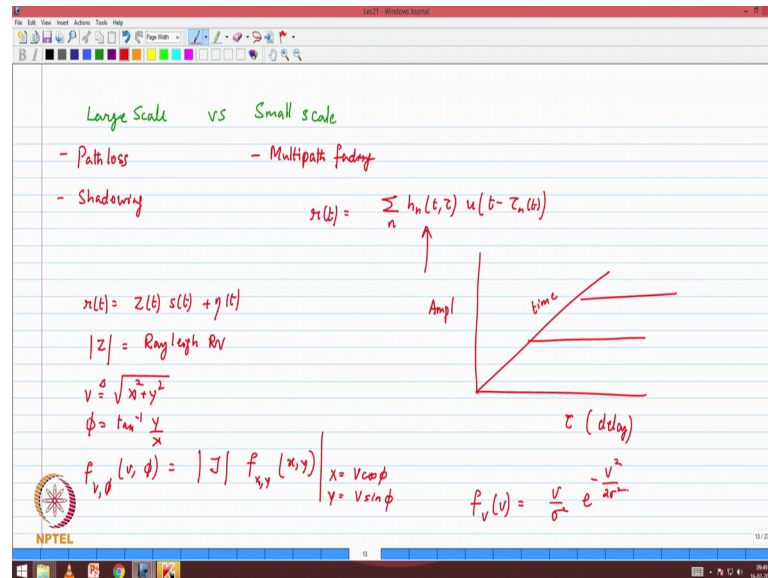 Lec21 - Windows Journal
File Edit View Insert Actions Tools Help
Page Width
B I
Large Scale vs Small scale
- Pathloss - Multipath fading
- Shadowing
r(t) = Σ_n h_n(t,τ) u(t - τ_n(t))
Ampl
time
τ (delay)
r(t) = Z(t) s(t) + η(t)
|Z| = Rayleigh RV
v ≜ √(x²+y²)
ϕ = tan⁻¹ y/x
f_{v,ϕ}(v,ϕ) = |J| f_{x,y}(x,y) | x = v cosϕ
y = v sinϕ
f_v(v) = v/σ² e^{-v²/2σ²}
NPTEL
13
09:49